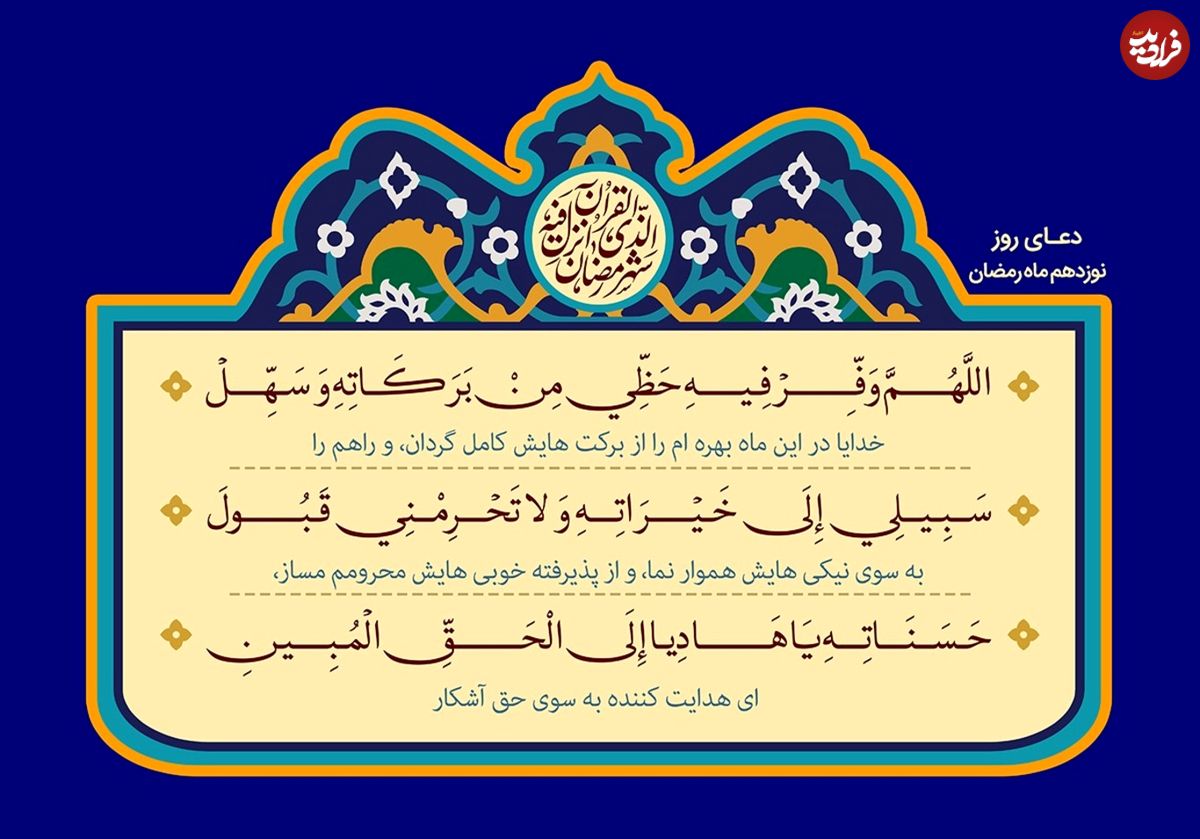 فرادید
شهر رمضان
الذی أنزل فیه
القرآن
دعـای روز
نوزدهم ماه رمضان
اللَّهُمَّ وَفِّرْ فِيهِ حَظِّي مِنْ بَرَكَاتِهِ وَ سَهِّلْ
خدایا در این ماه بهره ام را از برکت هایش کامل گردان، و راهم را
سَبِيلِي إِلَى خَيْرَاتِهِ وَ لا تَحْرِمْنِي قَبُولَ
به سوی نیکی هایش هموار نما، و از پذیرفته خوبی هایش محرومم مساز،
حَسَنَاتِهِ يَا هَادِيا إِلَى الْحَقِّ الْمُبِينِ
ای هدایت کننده به سوی حق آشکار